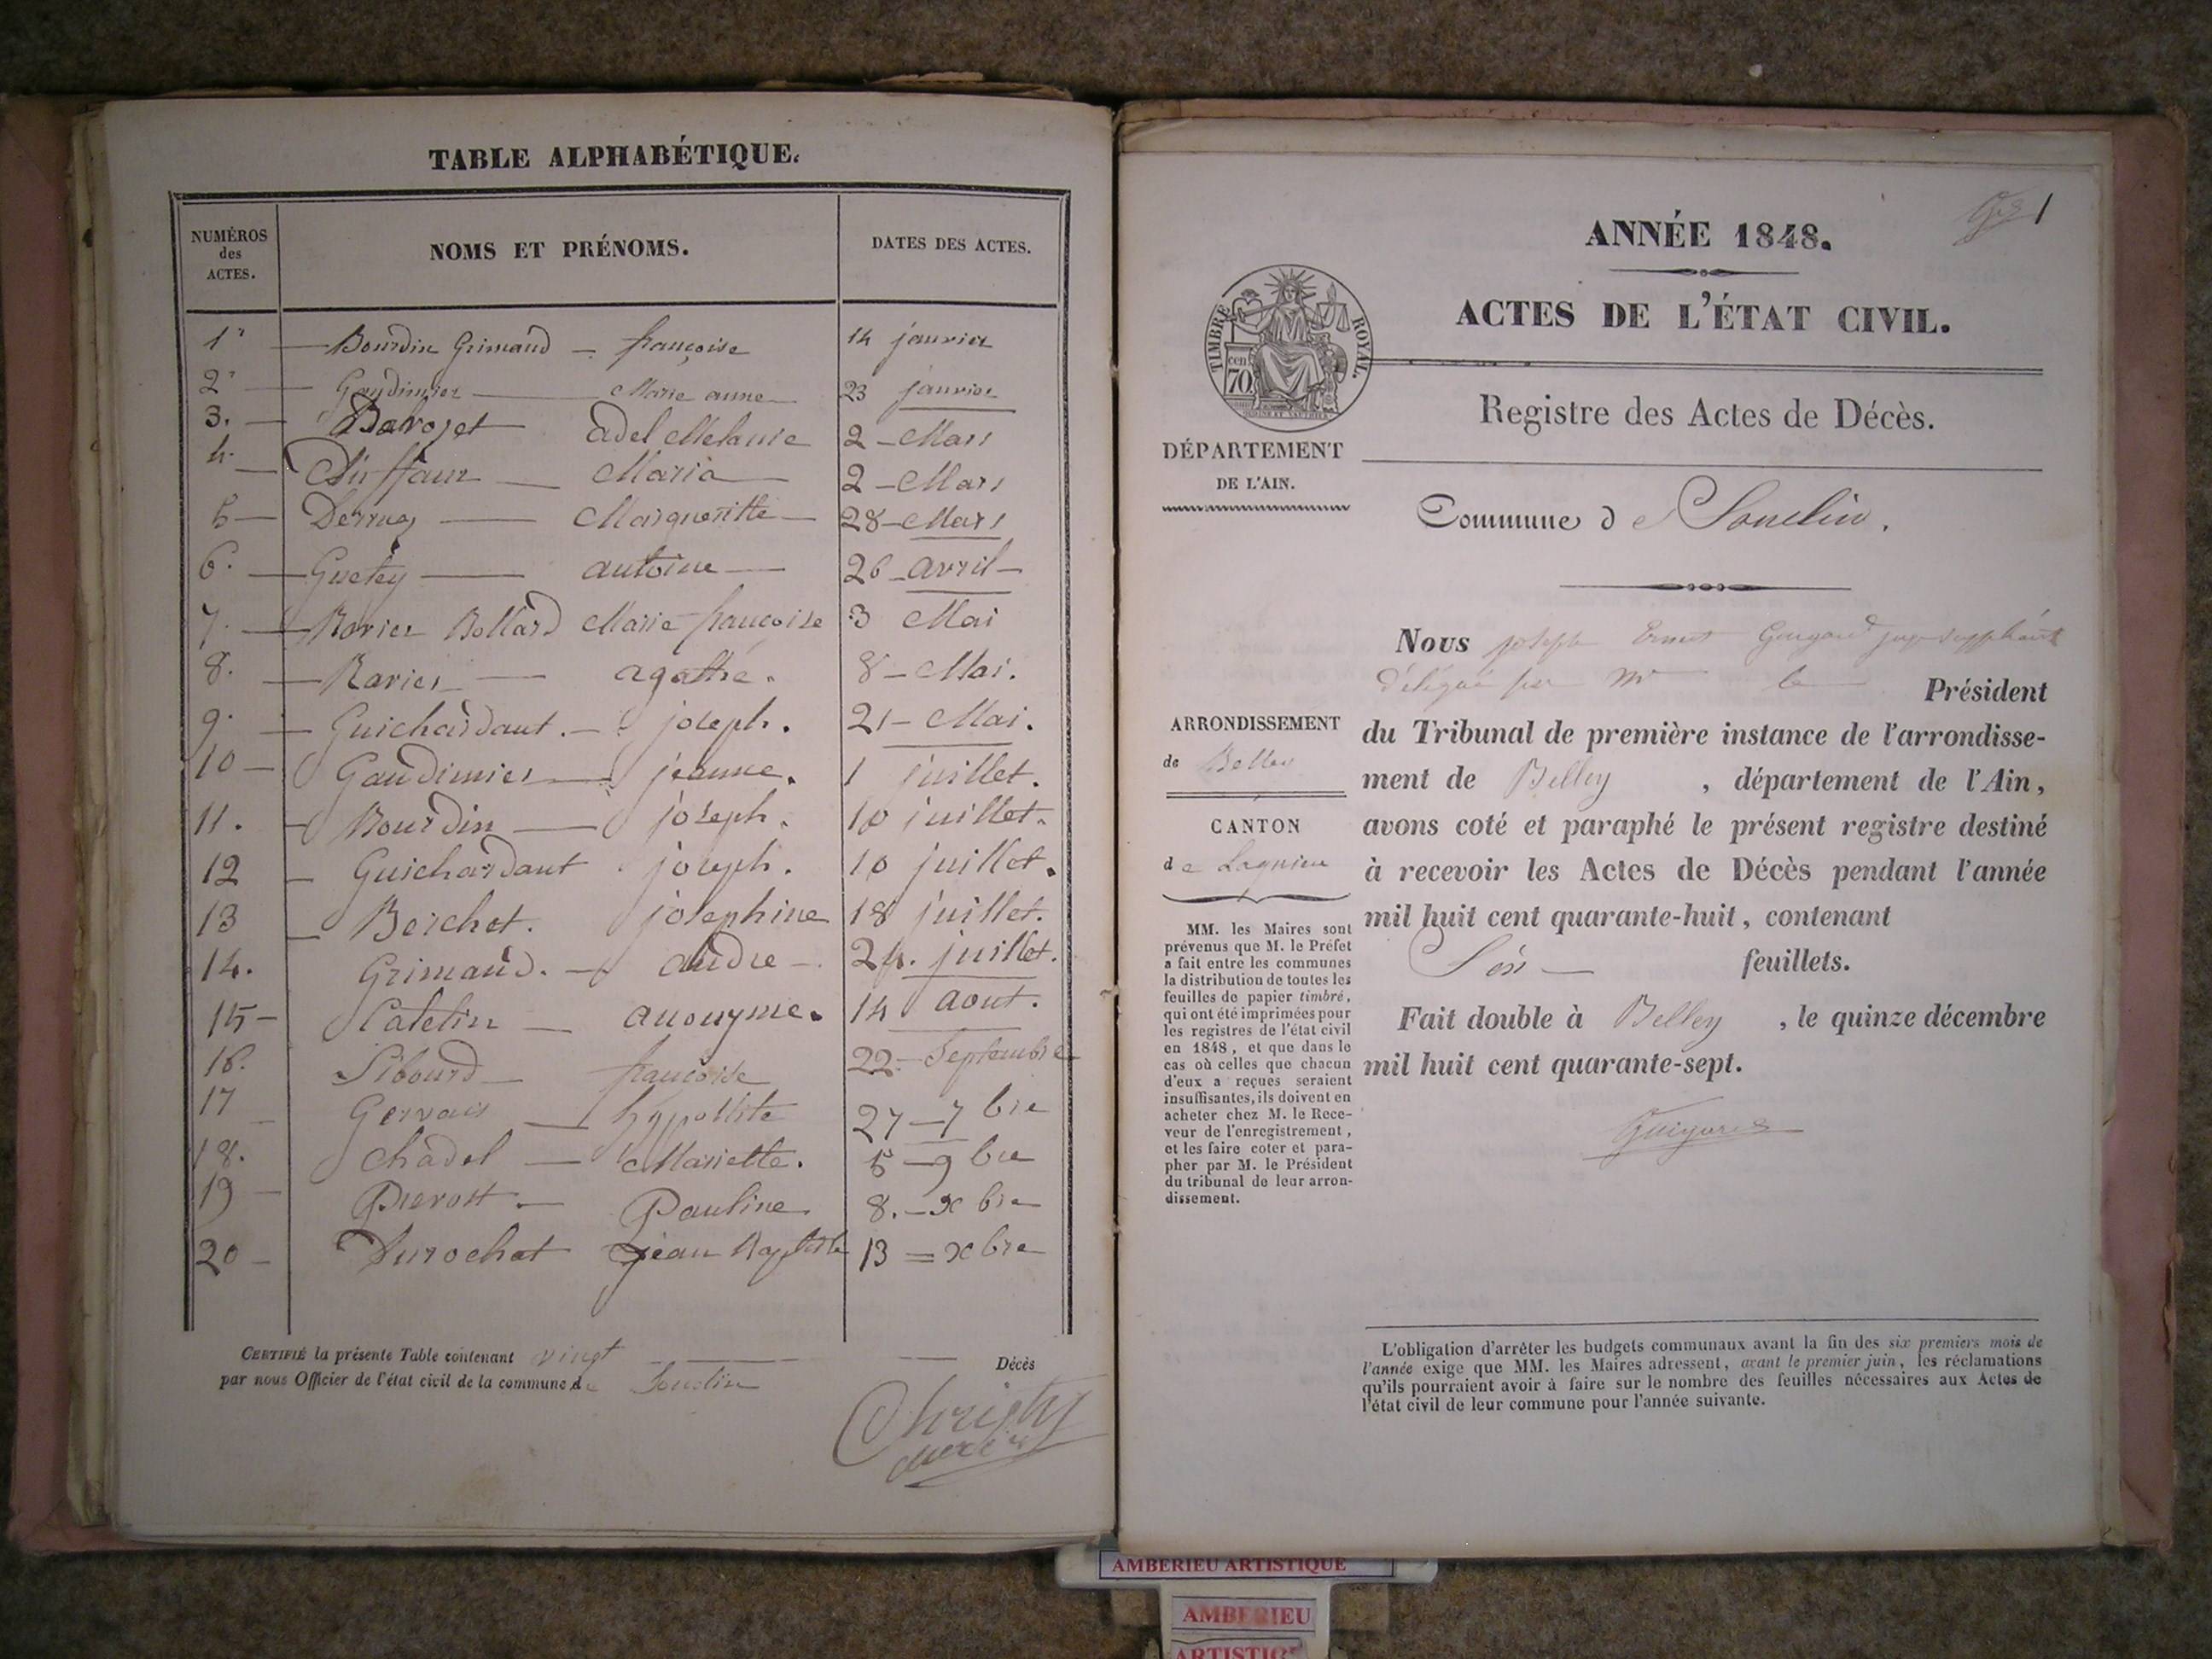 TABLE ALPHABÉTIQUE.
NUMÉROS des ACTES. NOMS ET PRÉNOMS. DATES DES ACTES.
1 Bourdin Grimaud françoise 14 janvier
2 Gaudimier Marie anne 23 janvier
3. Barojet adel Melanie 2 Mars
4. Maria 2 Mars
5 Margueritte 28 Mars
6. Guetey antoine 26 avril
7. Ravier Bollard Marie françoise 3 Mai
8. Ravier agathe. 8 Mai.
9. Guichardaut. joseph. 21 Mai.
10 Gaudimier jeanne. 1 juillet.
11. Bourdin joseph. 10 juillet.
12 Guichardaut joseph. 10 juillet.
13 Berchet. josephine 18 juillet.
14. Grimaud. andre 24. juillet.
15 Catelin anonyme. 14 aout.
16. Sibourd françoise 22 Septembre
17 Gervais hypollite 27 7 bre
18. Chadel Mariette. 5 9 bre
19 Prevost. Pauline 8. x bre
20 Durochat jean Baptiste 13 = x bre
CERTIFIÉ la présente Table contenant vingt Décès
par nous Officier de l'état civil de la commune de Souclin
Christin
ANNÉE 1848.
1
ACTES DE L'ÉTAT CIVIL.
TIMBRE ROYAL.
cen
70
Registre des Actes de Décès.
DÉPARTEMENT
DE L'AIN.
Commune de Souclin.
Nous joseph Ernest Guigard juge suppléant
délégué par Mr le Président
du Tribunal de première instance de l'arrondisse-
ment de Belley , département de l'Ain,
avons coté et paraphé le présent registre destiné
à recevoir les Actes de Décès pendant l'année
mil huit cent quarante-huit, contenant
feuillets.
Fait double à Belley , le quinze décembre
mil huit cent quarante-sept.
Guigard
ARRONDISSEMENT
de Belley
CANTON
de Lagnieu
MM. les Maires sont
prévenus que M. le Préfet
a fait entre les communes
la distribution de toutes les
feuilles de papier timbré,
qui ont été imprimées pour
les registres de l'état civil
en 1848, et que dans le
cas où celles que chacun
d'eux a reçues seraient
insuffisantes, ils doivent en
acheter chez M. le Rece-
veur de l'enregistrement,
et les faire coter et para-
pher par M. le Président
du tribunal de leur arron-
dissement.
L'obligation d'arrêter les budgets communaux avant la fin des six premiers mois de
l'année exige que MM. les Maires adressent, avant le premier juin, les réclamations
qu'ils pourraient avoir à faire sur le nombre des feuilles nécessaires aux Actes de
l'état civil de leur commune pour l'année suivante.
AMBERIEU ARTISTIQUE
AMBERIEU
ARTISTIQ